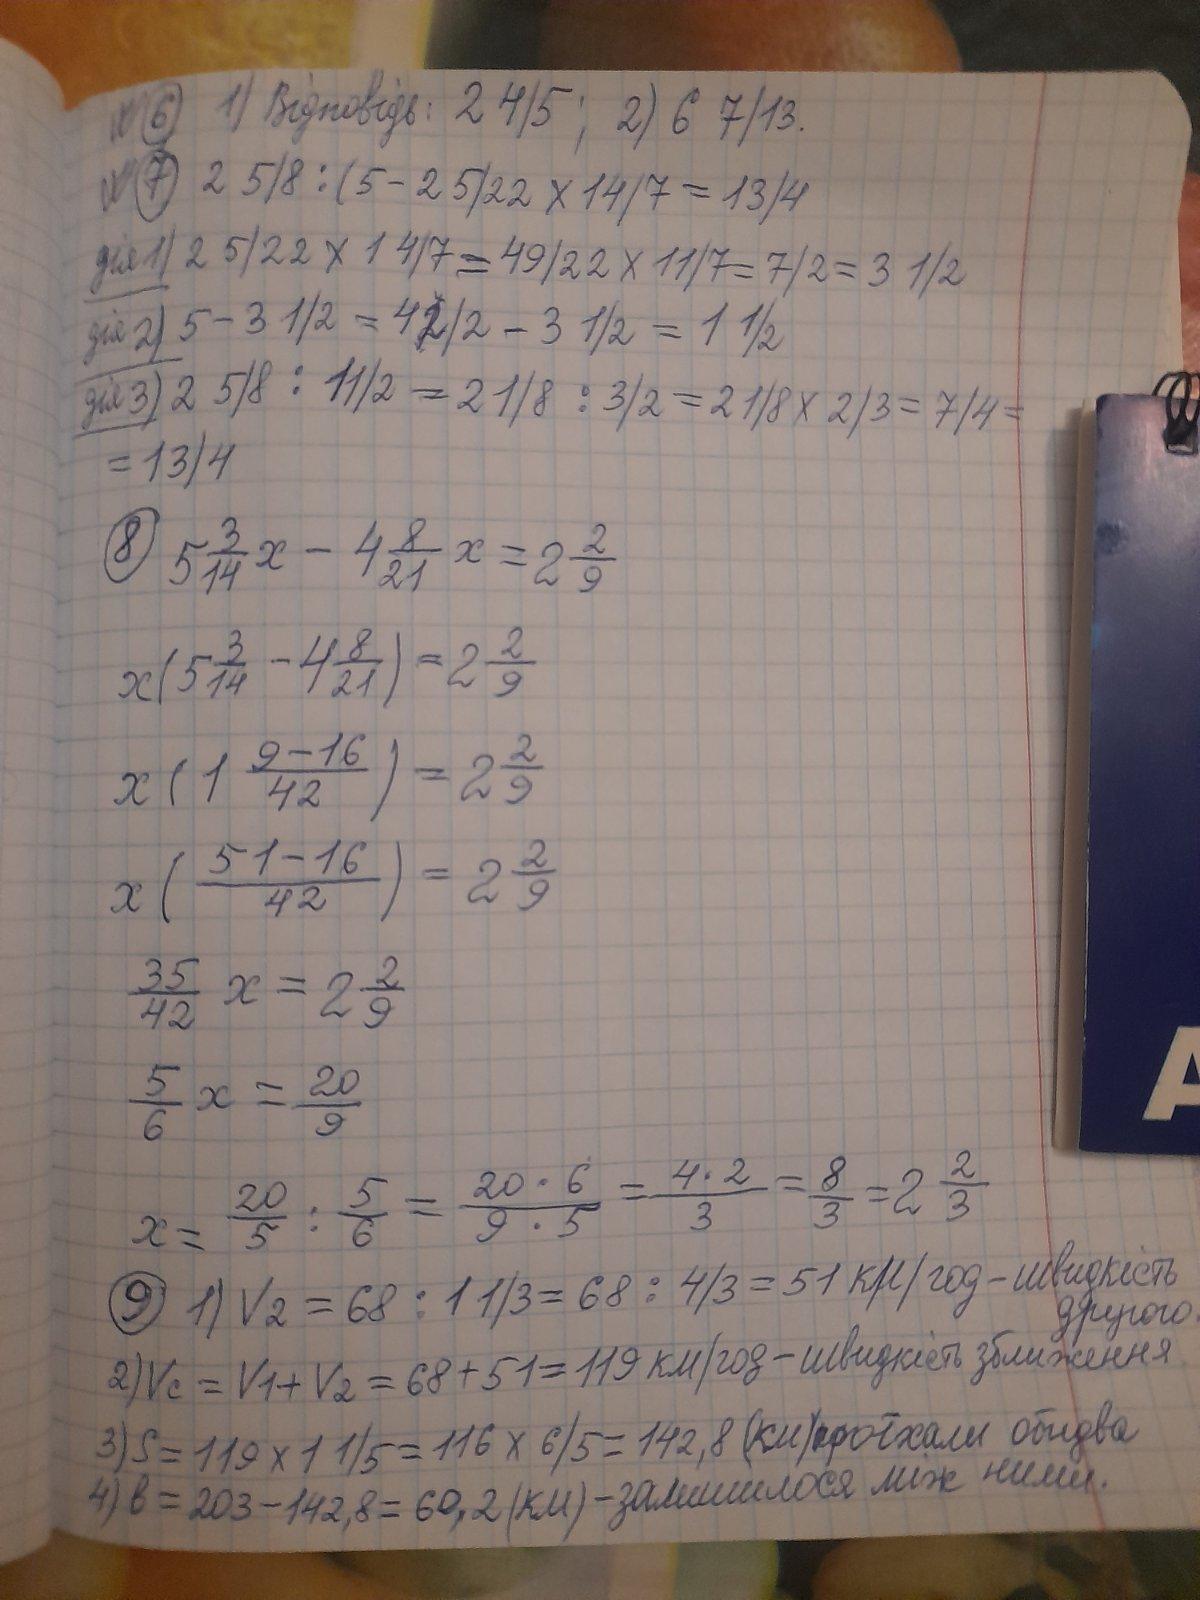 № 6 1) Відповідь: 2 4/5; 2) 6 7/13.
№ 7 2 5/8 : (5 - 2 5/22 x 1 4/7 = 1 3/4
дія 1) 2 5/22 x 1 4/7 = 49/22 x 11/7 = 7/2 = 3 1/2
дія 2) 5 - 3 1/2 = 4 2/2 - 3 1/2 = 1 1/2
дія 3) 2 5/8 : 1 1/2 = 21/8 : 3/2 = 21/8 x 2/3 = 7/4 =
= 1 3/4
8 5 3/14 x - 4 8/21 x = 2 2/9
x(5 3/14 - 4 8/21) = 2 2/9
x(1 9-16/42) = 2 2/9
x(51-16/42) = 2 2/9
35/42 x = 2 2/9
5/6 x = 20/9
x = 20/5 : 5/6 = 20·6/9·5 = 4·2/3 = 8/3 = 2 2/3
9 1) V2 = 68 : 1 1/3 = 68 : 4/3 = 51 км/год - швидкість
другого.
2) Vc = V1 + V2 = 68 + 51 = 119 км/год - швидкість зближення
3) S = 119 x 1 1/5 = 116 x 6/5 = 142,8 (км) проїхали обидва
4) в = 203 - 142,8 = 60,2 (км) - залишилося між ними.
A